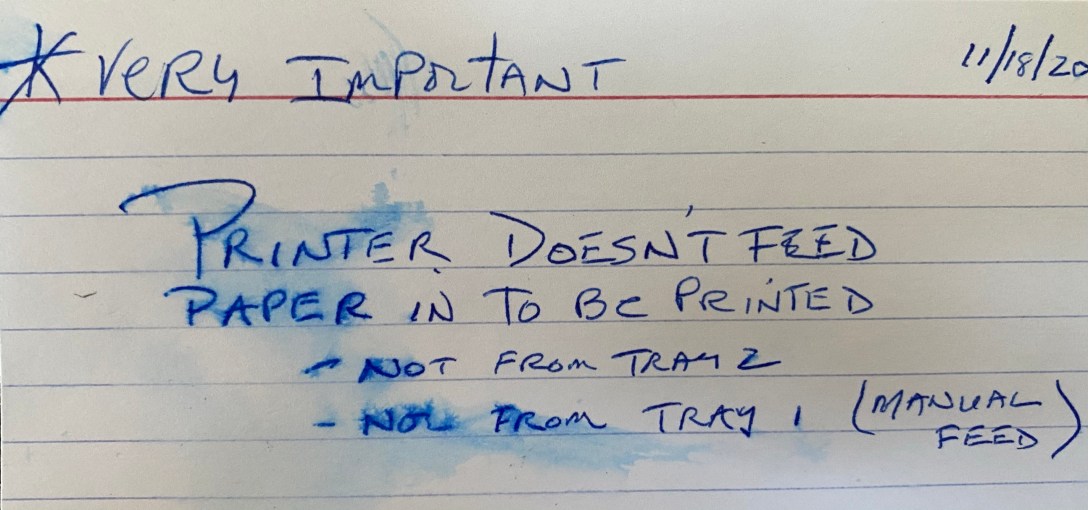 * VERY IMPORTANT 11/18/20
PRINTER DOESN'T FEED
PAPER IN TO BE PRINTED
- NOT FROM TRAY 2
- NOT FROM TRAY 1 (MANUAL
FEED)